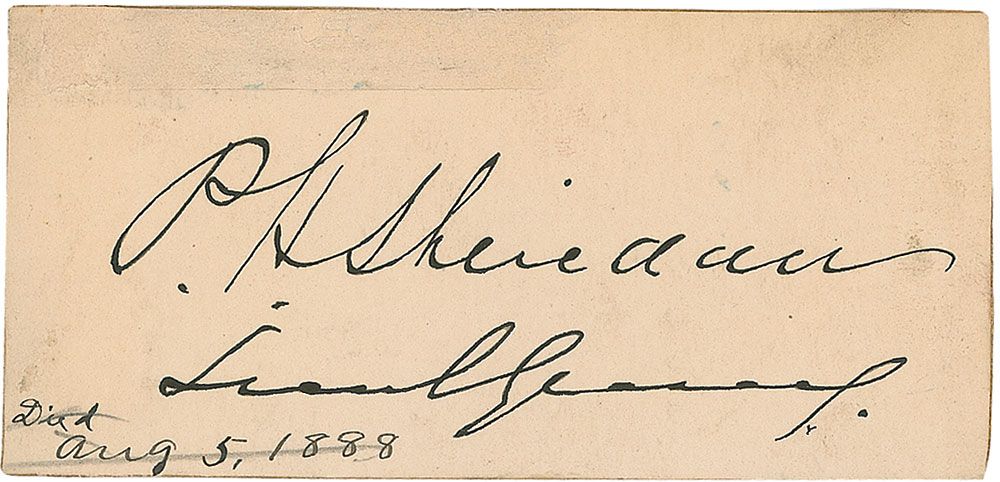 P. H Sheridan
Lieut General.
Died
Aug 5, 1888